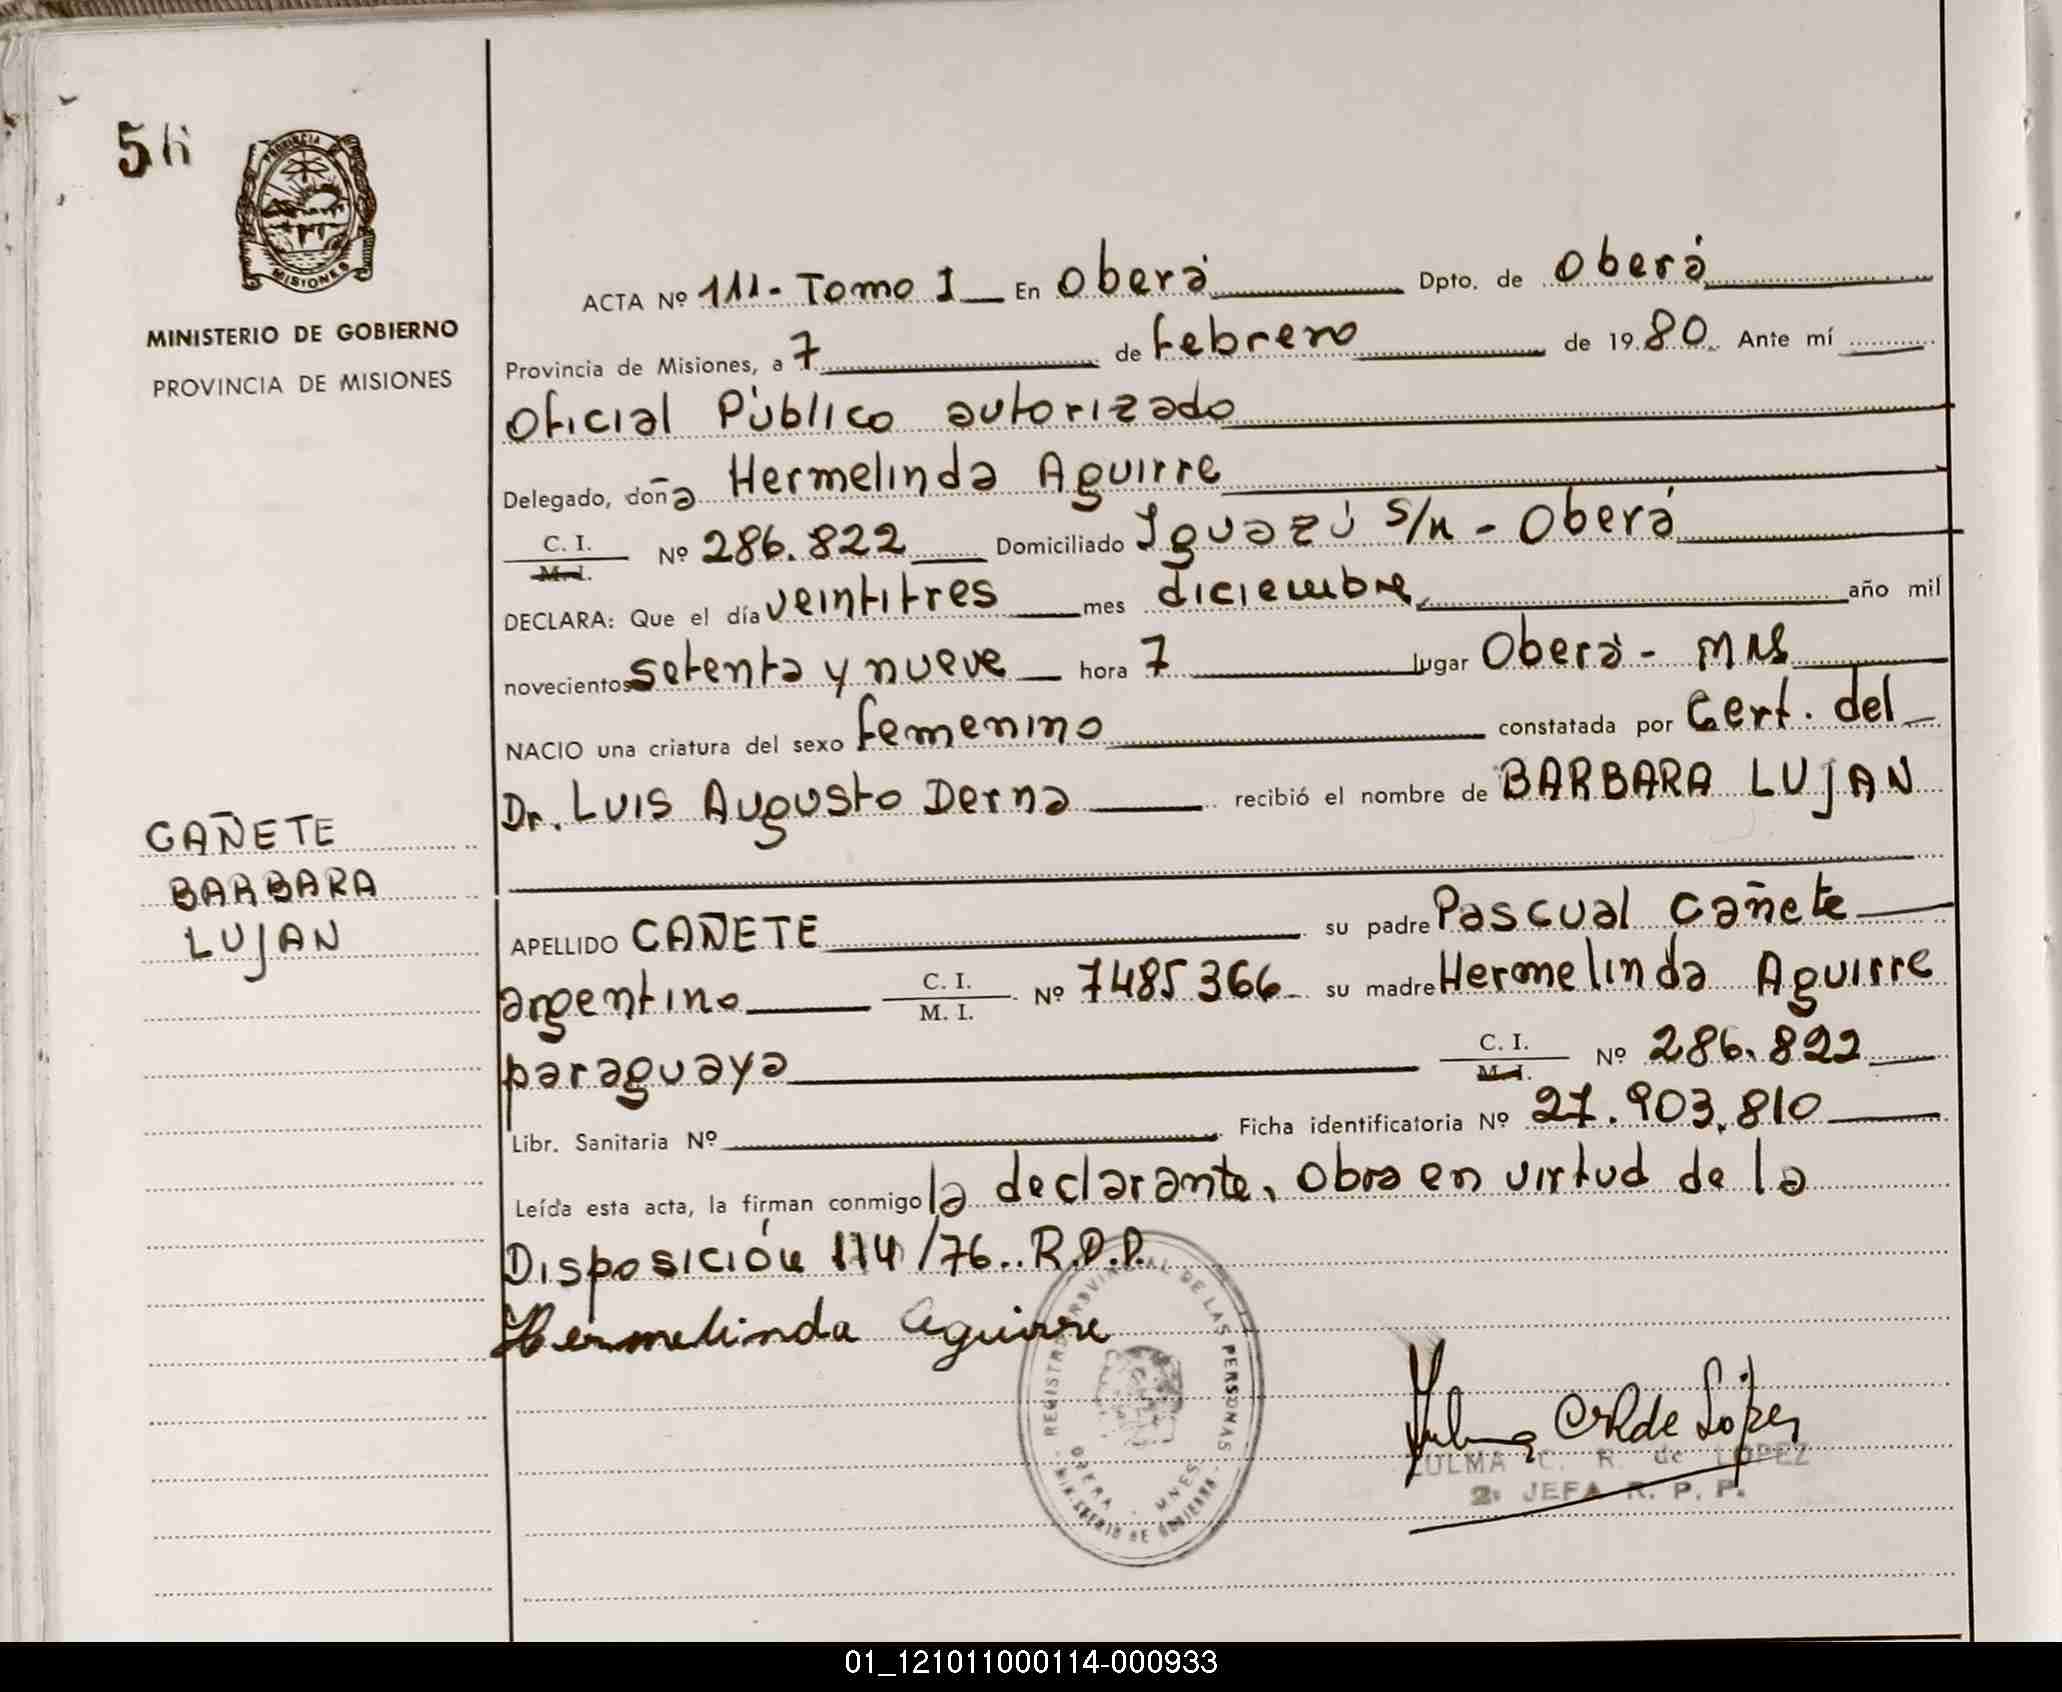 56
PROVINCIA
MISIONES
MINISTERIO DE GOBIERNO
PROVINCIA DE MISIONES
ACTA Nº 111- Tomo I En Oberá Dpto. de Oberá
Provincia de Misiones, a 7 de febrero de 1980 Ante mí
Oficial Público autorizado
Delegado, doña Hermelinda Aguirre
C. I.
M. I. Nº 286.822 Domiciliado Iguazú s/n - Oberá
DECLARA: Que el día veintitres mes diciembre año mil
novecientos setenta y nueve hora 7 lugar Oberá - MNS
NACIO una criatura del sexo femenino constatada por Cert. del
Dr. Luis Augusto Derna recibió el nombre de BARBARA LUJAN
CAÑETE
BARBARA
LUJAN
APELLIDO CAÑETE su padre Pascual Cañete
argentino C. I.
M. I. Nº 7485366 su madre Hermelinda Aguirre
paraguaya C. I.
M. I. Nº 286.822
Libr. Sanitaria Nº Ficha identificatoria Nº 27.903.810
Leída esta acta, la firman conmigo la declarante. Obra en virtud de la
Disposición 114/76.. R.P.P.
Hermelinda Aguirre
REGISTRO PROVINCIAL DE LAS PERSONAS
OBERA - MNES
MINISTERIO DE GOBIERNO
ZULMA C. R. de LOPEZ
2ª JEFA R. P. P.
01_121011000114-000933